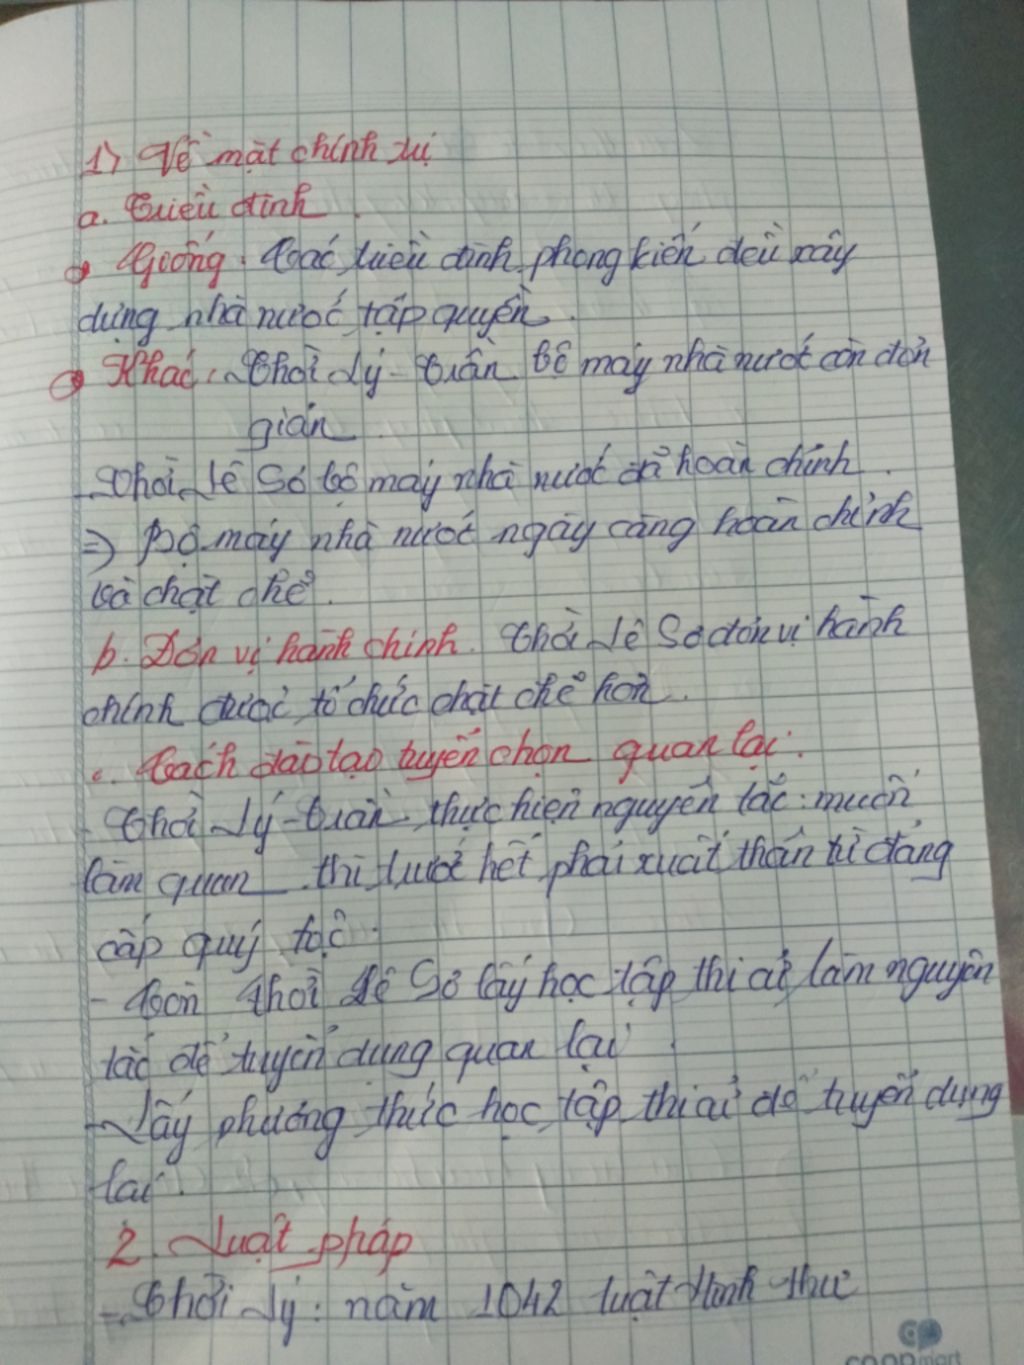 1) Về mặt chính trị
a. Triều đình.
Giống: Các triều đình phong kiến đều xây
dựng nhà nước tập quyền.
Khác: Thời Lý - Trần bộ máy nhà nước còn đơn
giản
- Thời Lê Sơ bộ máy nhà nước đã hoàn chỉnh.
=> Bộ máy nhà nước ngày càng hoàn chỉnh
và chặt chẽ.
b. Đơn vị hành chính. Thời Lê Sơ đơn vị hành
chính được tổ chức chặt chẽ hơn.
c. Cách đào tạo tuyển chọn quan lại:
- Thời Lý - Trần thực hiện nguyên tắc: muốn
làm quan thì trước hết phải xuất thân từ đẳng
cấp quý tộc.
- Còn thời Lê Sơ lấy học tập thi cử làm nguyên
tắc để tuyển dụng quan lại.
- Lấy phương thức học tập thi cử để tuyển dụng
lại.
2. Luật pháp
- Thời Lý: năm 1042 luật Hình thư
coopmart